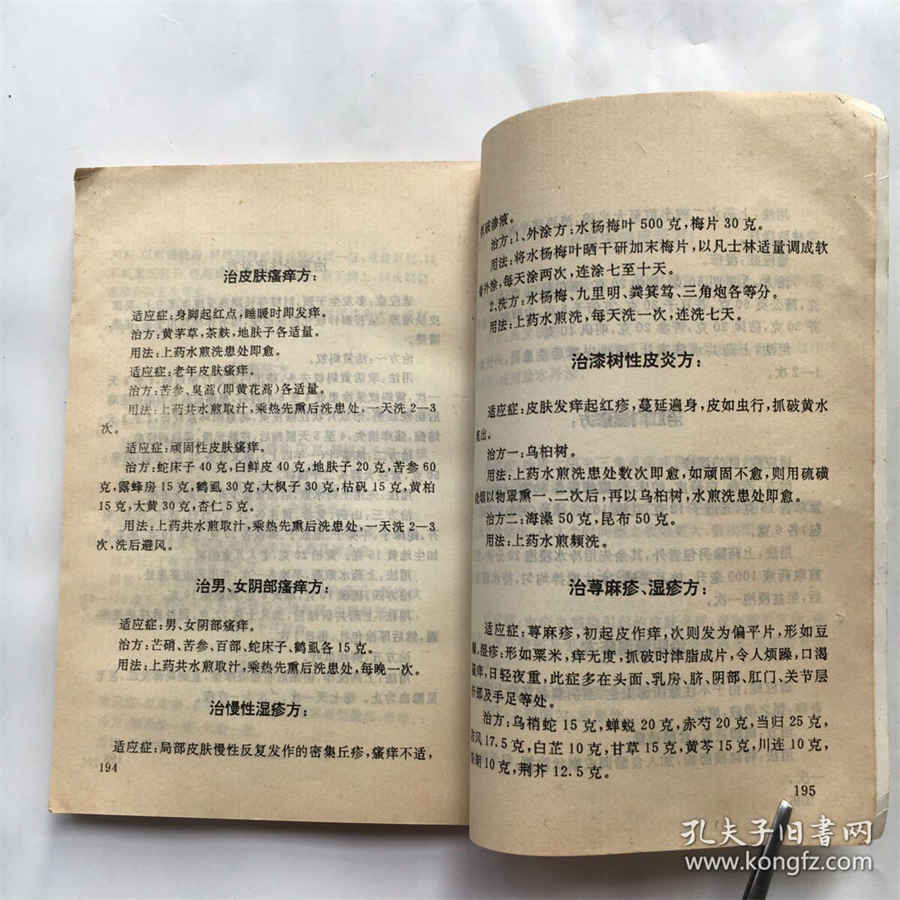 治皮肤瘙痒方：
适应症：身脚起红点，睡暖时即发痒。
治方：黄茅草，茶麸，地肤子各适量。
用法：上药水煎洗患处即愈。
适应症：老年皮肤瘙痒。
治方：苦参、臭蒿（即黄花蒿）各适量。
用法：上药共水煎取汁，乘热先熏后洗患处，一天洗2—3
次。
适应症：顽固性皮肤瘙痒。
治方：蛇床子40克，白鲜皮40克，地肤子20克，苦参60
克，露蜂房15克，鹤虱30克，大枫子30克，枯矾15克，黄柏
15克，大黄30克，杏仁5克。
用法：上药共水煎取汁，乘热先熏后洗患处，一天洗2—3
次，洗后避风。
治男、女阴部瘙痒方：
适应症：男、女阴部瘙痒。
治方：芒硝、苦参、百部、蛇床子、鹤虱各15克。
用法：上药共水煎取汁，乘热先熏后洗患处，每晚一次。
治慢性湿疹方：
适应症：局部皮肤慢性反复发作的密集丘疹，瘙痒不适，
194
渗液。
治方：1、外涂方：水杨梅叶500克，梅片30克。
用法：将水杨梅叶晒干研加末梅片，以凡士林适量调成软
膏外涂，每天涂两次，连涂七至十天。
2、洗方：水杨梅、九里明、粪箕笃、三角炮各等分。
用法：上药水煎洗，每天洗一次，连洗七天。
治漆树性皮炎方：
适应症：皮肤发痒起红疹，蔓延遍身，皮如虫行，抓破黄水
出。
治方一：乌桕树。
用法：上药水煎洗患处数次即愈，如顽固不愈，则用硫磺
以物罩熏一、二次后，再以乌桕树，水煎洗患处即愈。
治方二：海藻50克，昆布50克。
用法：上药水煎频洗。
治荨麻疹、湿疹方：
适应症：荨麻疹，初起皮作痒，次则发为偏平片，形如豆
，湿疹：形如粟米，痒无度，抓破时津脂成片，令人烦躁，口渴
痒，日轻夜重，此症多在头面、乳房、脐、阴部、肛门、关节层
部及手足等处。
治方：乌梢蛇15克，蝉蜕20克，赤芍20克，当归25克，
防风17.5克，白芷10克，甘草15克，黄芩15克，川连10克，
10克，荆芥12.5克。
195
孔夫子旧书网
www.kongfz.com